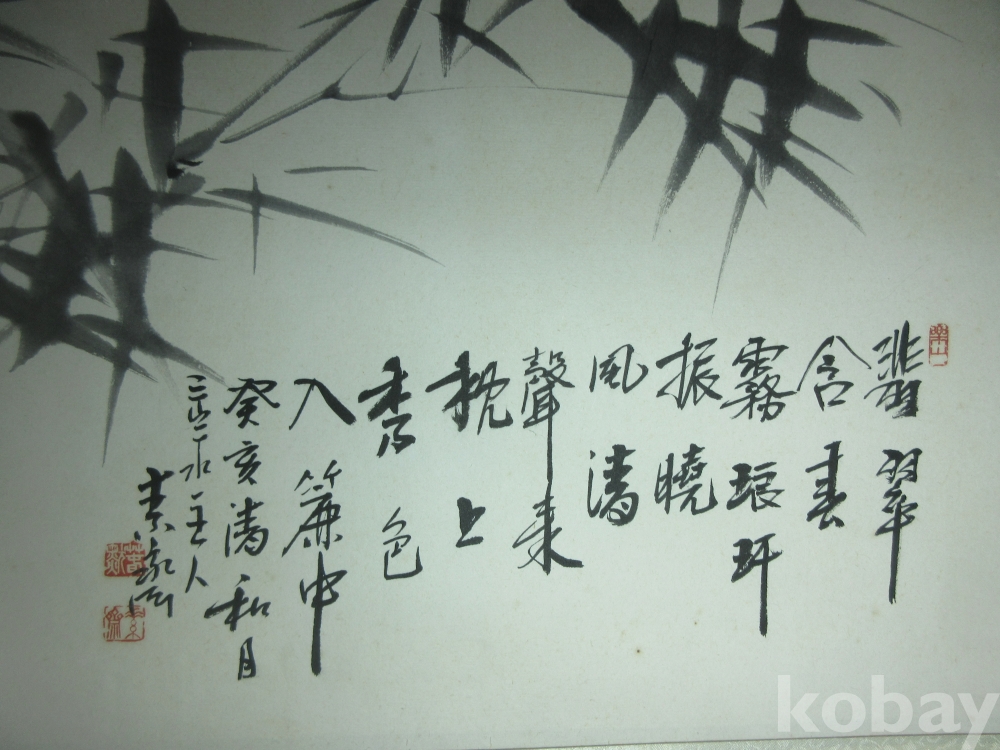 翡翠
含春
霧琅玕
振曉
風清
聲來
枕上
秀色
入簾中
癸亥清和月
主人
素
kobay